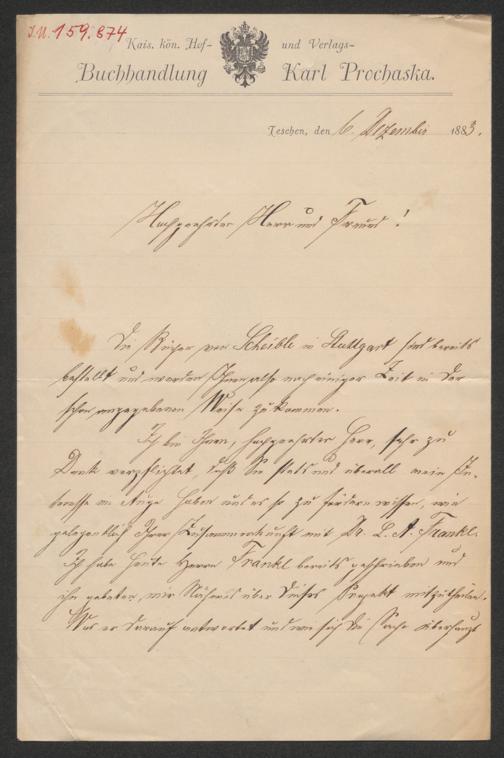 J.N. 159.874
Kais. kön. Hof- und Verlags-
Buchhandlung Karl Prochaska.
Teschen, den 6. Dezember 1883.
Hochgeehrter Herr und Freund!
Die Bücher von Scheible in Stuttgart sind bereits
bestellt und werden Ihnen also nach einiger Zeit in der
schon angegebenen Weise zukommen.
Ich bin Ihnen, hochgeehrter Herr, sehr zu
Dank verpflichtet, daß Sie stets und überall mein In-
teresse im Auge haben und es so zu fördern wissen, wie
gelegentlich Ihrer Zusammenkunft mit Dr. L. A. Frankl.
Ich habe heute Herrn Frankl bereits geschrieben und
ihn gebeten, mir Näheres über dieses Projekt mitzutheilen.
Was er darauf antwortet und wie sich die Sache überhaupt